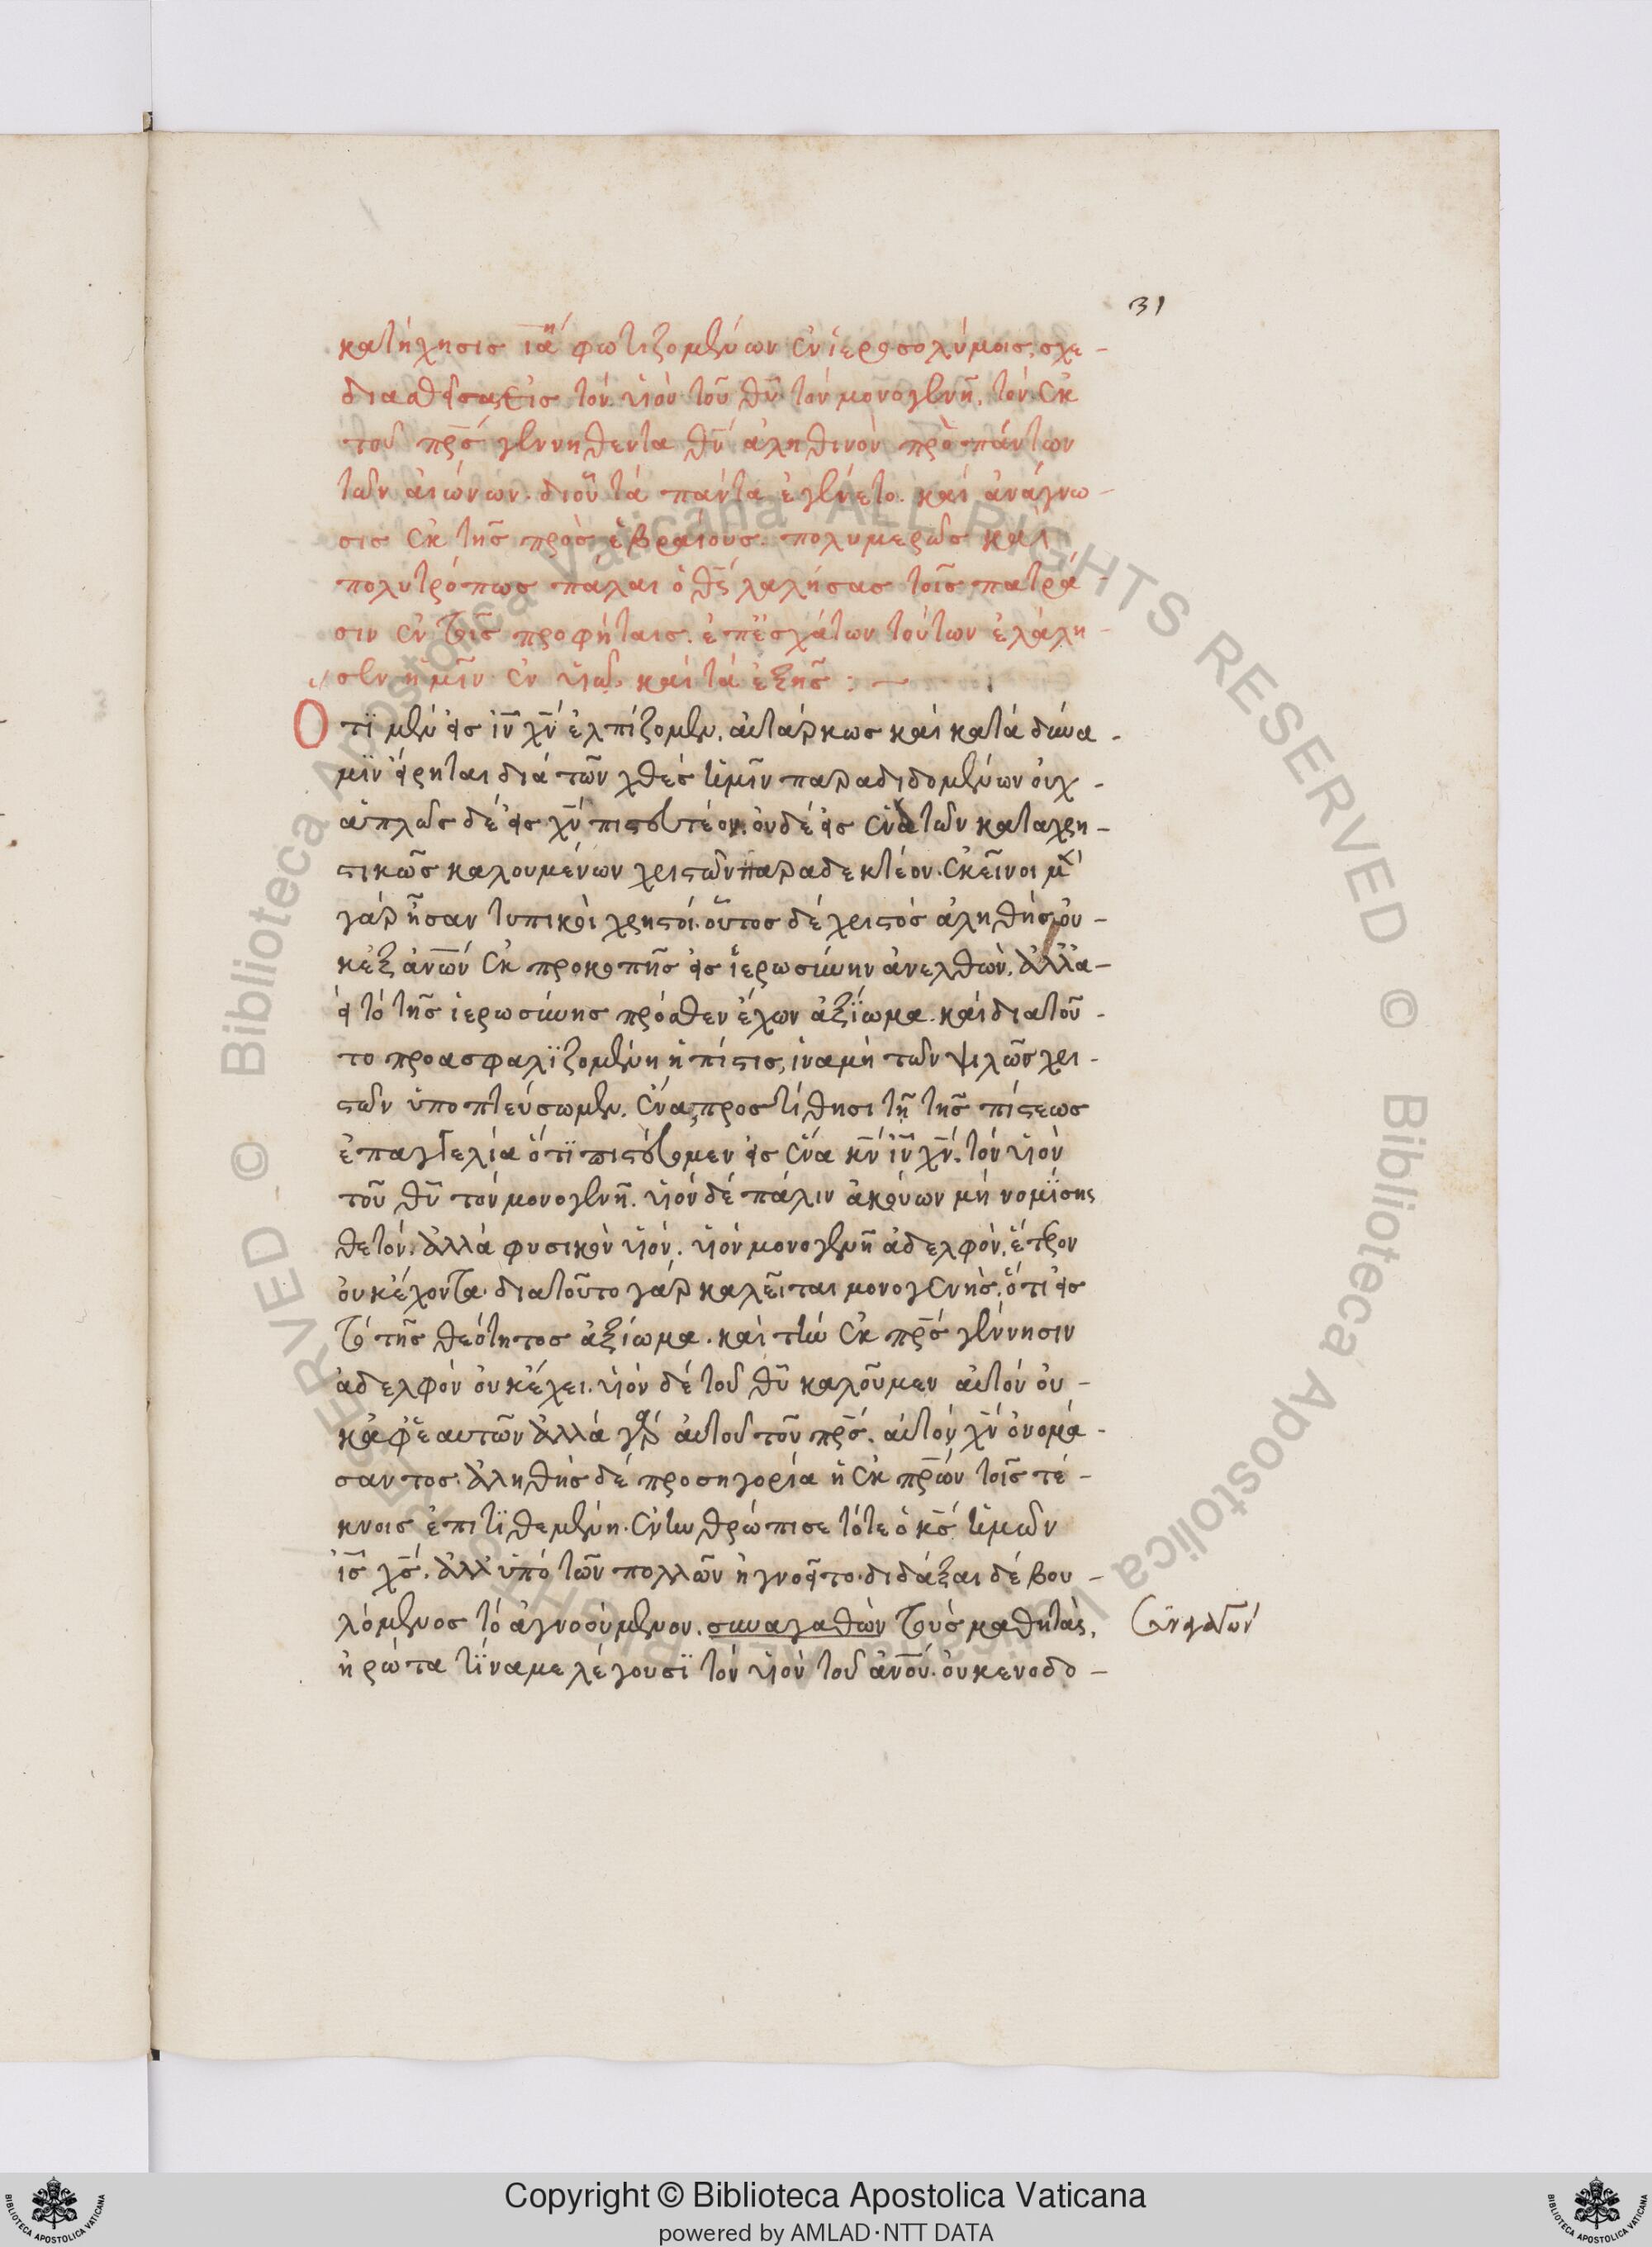 31
κατήχησις ιαη φωτιζομένων ἐν ἱεροσολύμοις, σχε-
διασθεῖσα εἰς τὸν υἱὸν τοῦ θ̅υ̅ τὸν μονογενῆ, τὸν ἐκ
τοῦ π̅ρ̅ς̅ γεννηθέντα θ̅ν̅ ἀληθινὸν πρὸ πάντων
τῶν αἰώνων. δι οὗ τὰ πάντα ἐγένετο. καὶ ἀνάγνω-
σις ἐκ τῆς πρὸς ἑβραίους. πολυμερῶς καὶ
πολυτρόπως πάλαι ὁ θ̅ς̅ λαλήσας τοῖς πατρά-
σιν ἐν τοῖς προφήταις. ἐπ ἐσχάτων τούτων ἐλάλη-
σεν ἡμῖν ἐν υἱῷ. καὶ τὰ ἑξῆς : —
Ὅτϊ μὲν εἰς ι̅ν̅ χ̅ν̅ ἐλπίζομεν, αὐτάρκως καὶ κατὰ δύνα-
μϊν εἴρηται διὰ τῶν χθὲς ὑμῖν παραδιδομένων οὐχ
ἁπλῶς δὲ εἰς χ̅ν̅ πιστευτέον. οὐδὲ εἰς ἕνα τῶν καταχρη-
στικῶς καλουμένων χριστῶν παραδεκτέον. ἐκεῖνοι μὲν
γὰρ ἦσαν τυπικοὶ χρηστοί. οὗτος δὲ χριστὸς ἀληθής. οὐ-
κ ἐξ ἀν̅ων ἐκ προκοπῆς εἰς ἱερωσύνην ἀνελθὼν. ἀλλὰ-
εἰ τὸ τῆς ἱερωσύνης πρόσθεν ἔχων ἀξίωμα. καὶ διατοῦ-
το προασφαλϊζομένη ἡ πίστις, ἵνα μὴ τῶν ψιλῶς χρι-
στῶν ὑποπτεύσωμεν. ἕνα, προστίθησι τῇ τῆς πίστεως
ἐπαγγελία ὅτϊ πιστεύομεν εἰς ἕνα κ̅ν̅ ι̅ν̅ χ̅ν̅. τὸν υἱὸν
τοῦ θ̅υ̅ τὸν μονογενῆ. υἱὸν δὲ πάλιν ἀκούων μὴ νομϊσης
θετόν. ἀλλὰ φυσικὸν υἱόν. υἱὸν μονογενῆ ἀδελφὸν, ἕτερον
οὐκ ἔχοντα. διατοῦτο γὰρ καλεῖται μονογενὴς, ὅτι εἰς
τὸ τῆς θεότητος ἀξίωμα. καὶ τὴν ἐκ π̅ρ̅ς̅ γέννησιν
ἀδελφὸν οὐκ ἔχει. υἱὸν δὲ τοῦ θ̅υ̅ καλοῦμεν αὐτὸν οὐ-
κ ἀφ ἑαυτῶν ἀλλὰ γὰρ αὐτοῦ τοῦ π̅ρ̅ς̅. αὐτὸν χ̅ν̅ ὀνομά-
σαντος. ἀληθὴς δὲ προσηγορία ἡ ἐκ π̅ρ̅ων τοῖς τέ-
κνοις ἐπιτϊθεμένη. ἐνηνθρώπισε τότε ὁ κ̅ς̅ ἡμῶν
ι̅ς̅ χ̅ς̅. ἀλλ ὑπὸ τῶν πολλῶν ἠγνοεῖτο. διδάξαι δὲ βου-
λόμενος τὸ ἀγνοούμενον. συναγαθὼν τοὺς μαθητὰς,
ἠρώτα τίνα με λέγουσϊ τὸν υἱὸν τοῦ ἀν̅ου. οὐ κενοδο-
Copyright © Biblioteca Apostolica Vaticana
powered by AMLAD·NTT DATA